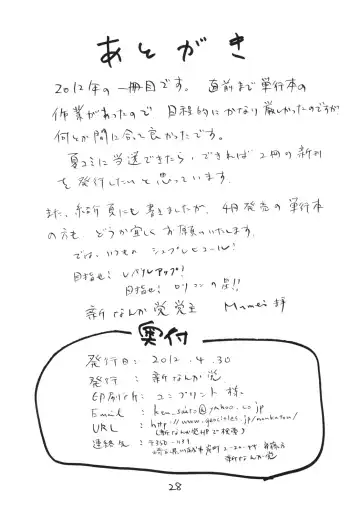 あとがき
2012年の一冊目です。直前まで単行本の
作業があったので、日程的にかなり厳しかったのですが
何とか間に合って良かったです。
夏コミに当選できたら、できれば2冊の新刊
を発行したいと思っています。
また、にも書きましたが、4月発売の単行本
の方も、どうか宜しくお願いいたします。
では、いつもの シュプレヒコール!
目指せ! レベルアップ!
目指せ! の星!!
新なんか党 党主 Mumei 拝
奥付
発行日: 2012.4.30
発行 : 新なんか党
印刷所: プリント 様
Email : ken_saito@yahoo.co.jp
URL : http://www.geocities.jp/nankatou/
(新なんか党HPで検索)
連絡先 : 〒350-1131
埼玉県川越市岸町2-20-
新なんか党
28